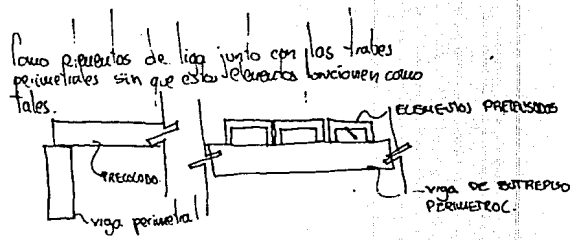 Como elementos de liga junto con las trabes
perimetrales sin que estos elementos funcionen como
tales.
ELEMENTOS PRETENSADOS
PRECOLADO.
viga perimetral
viga DE ENTREPISO
PERIMETRAL.